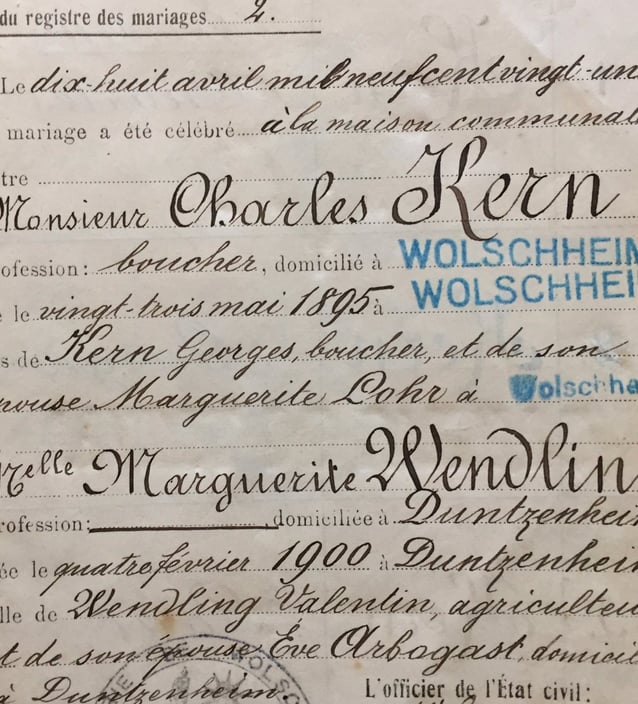 du registre des mariages 2.
Le dix-huit avril mil neuf cent vingt-un
mariage a été célébré à la maison communal
tre
Monsieur Charles Kern
ofession: boucher, domicilié à WOLSCHHEIM
e le vingt-trois mai 1895 à WOLSCHHEI
s de Kern Georges, boucher, et de son
pouse Marguerite Lohr à Wolschhe
Melle Marguerite Wendlin
rofession: domiciliée à Duntzenheim
ée le quatre février 1900 à Duntzenheim
lle de Wendling Valentin, agriculteu
t de son épouse Ève Arbogast, domicil
à Duntzenheim
L'officier de l'État civil: